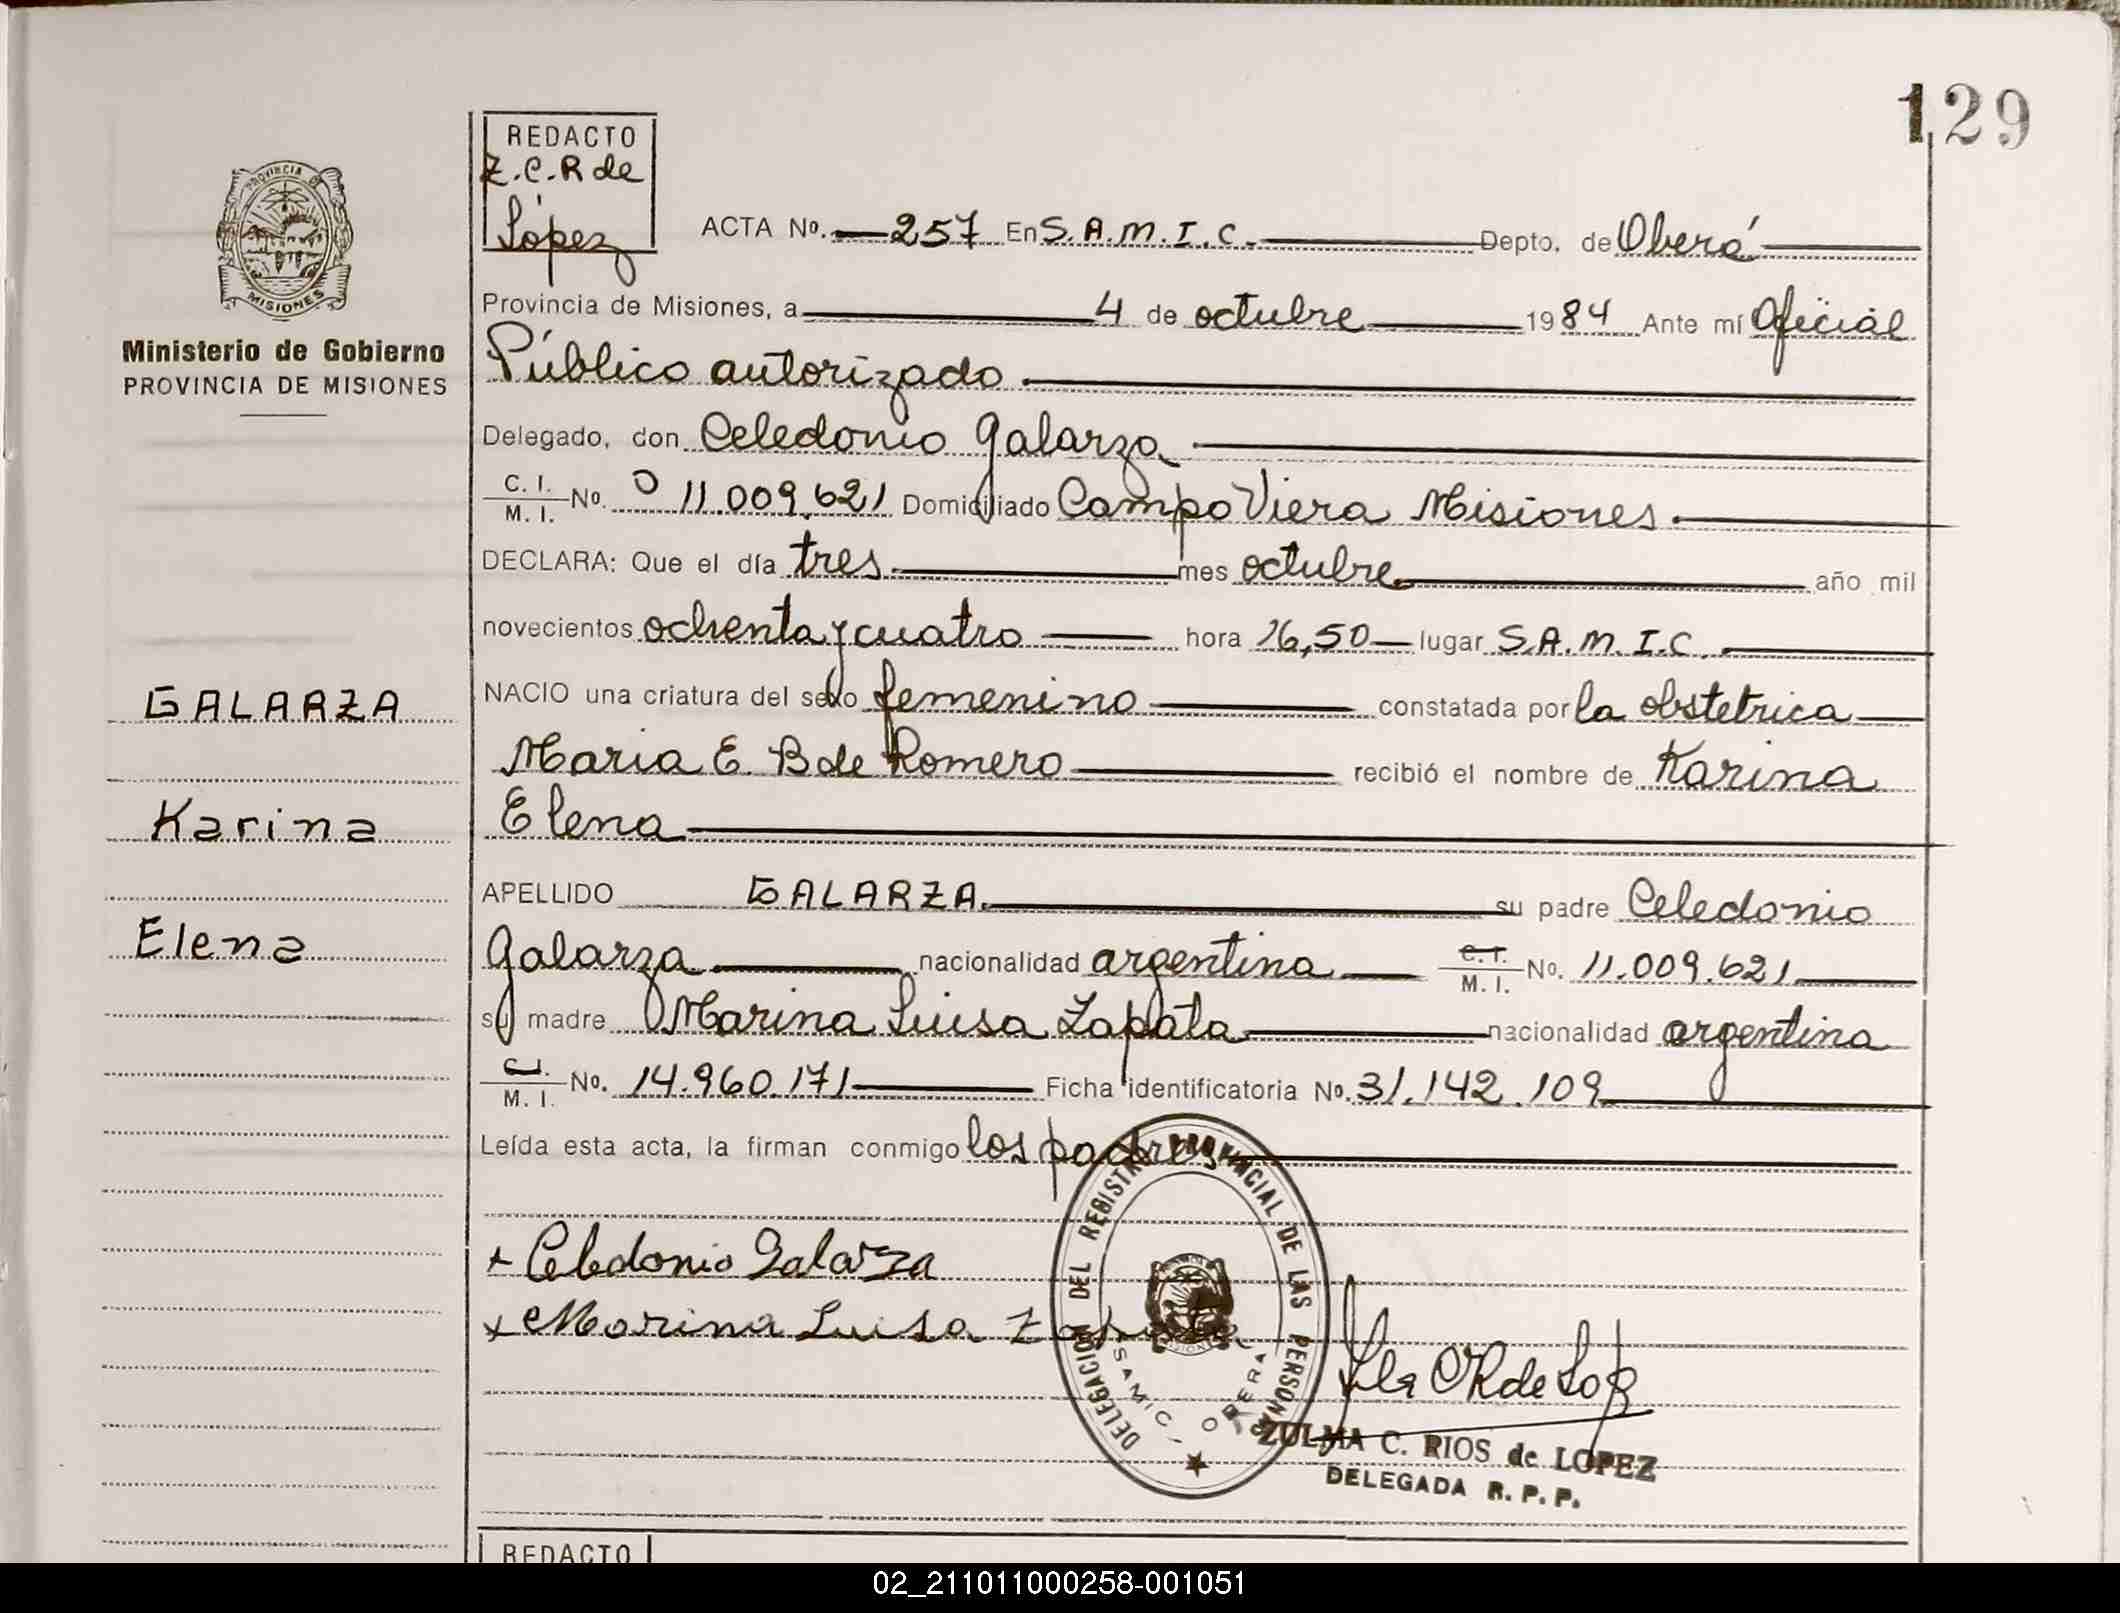 129
REDACTO
Z.C.R de
López
ACTA No. 257 En S.A.M.I.C. Depto. de Oberá
Provincia de Misiones, a 4 de octubre 1984 Ante mí Oficial
Público autorizado.
Delegado, don Celedonio Galarza
C. I.
M. I. No. 11.009.621 Domiciliado Campo Viera Misiones.
DECLARA: Que el día tres. mes octubre año mil
novecientos ochenta y cuatro hora 16,50 lugar S.A.M.I.C.
NACIO una criatura del sexo femenino constatada por la obstetrica
Maria E. B de Romero recibió el nombre de Karina
Elena
APELLIDO GALARZA. su padre Celedonio
Galarza nacionalidad argentina C. I.
M. I. No. 11.009.621
su madre Marina Luisa Zapata nacionalidad argentina
C. I.
M. I. No. 14.960.171 Ficha identificatoria No. 31.142.109
Leída esta acta, la firman conmigo los padres
x Celedonio Galarza
x Marina Luisa Zapata
DELEGACION DEL REGISTRO PROVINCIAL DE LAS PERSONAS
SAMIC - OBERA
MISIONES
ZULMA C. RIOS de LOPEZ
DELEGADA R. P. P.
REDACTO
PROVINCIA DE
MISIONES
Ministerio de Gobierno
PROVINCIA DE MISIONES
GALARZA
Karina
Elena
02_211011000258-001051